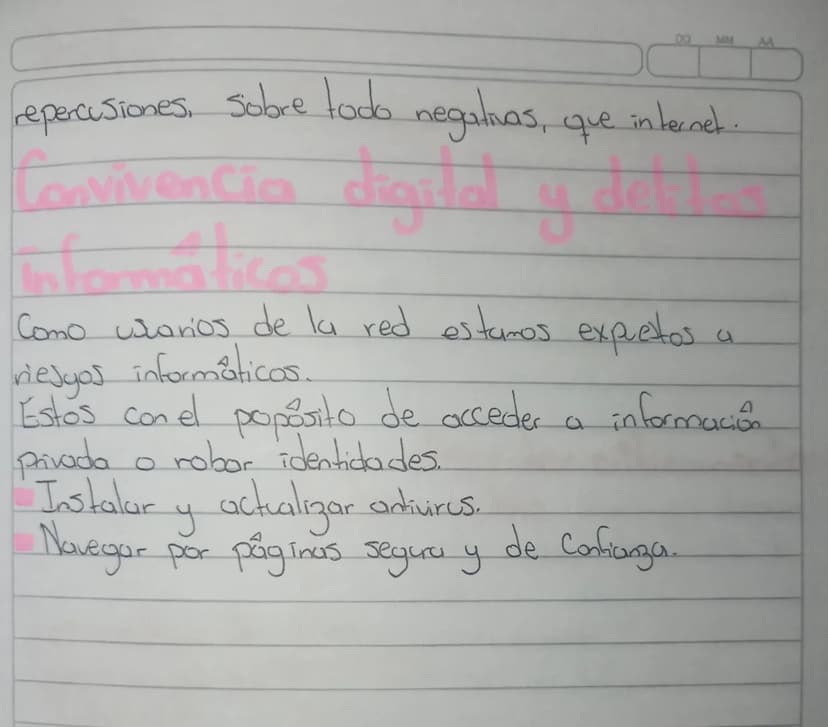 DD MM AA
repercusiones, sobre todo negativas, que internet.
Convivencia digital y delitos
informáticos
Como usuarios de la red estamos expuetos a
riesgos informáticos.
Estos con el popósito de acceder a información
privada o robar identidades.
Instalar y actualizar antivirus.
Navegar por páginas segura y de confianza.